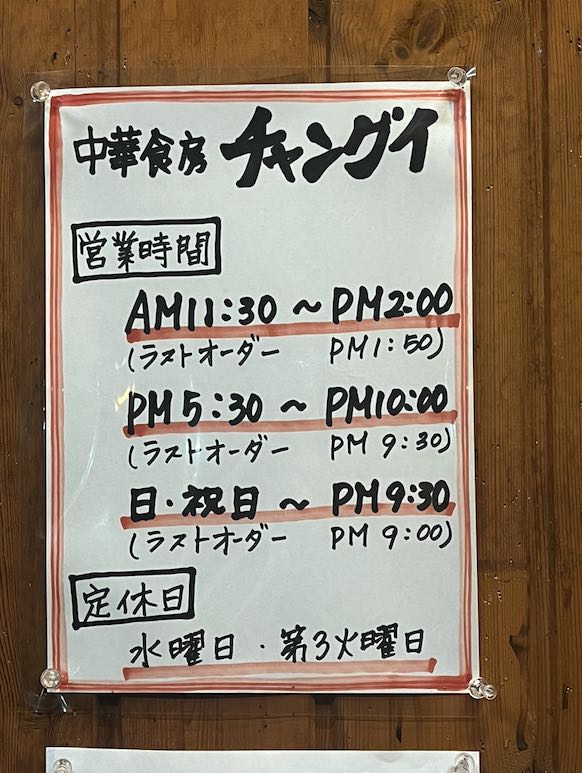 中華食房 チャングイ
営業時間
AM11:30 ～ PM2:00
(ラストオーダー PM1:50)
PM5:30 ～ PM10:00
(ラストオーダー PM 9:30)
日・祝日 ～ PM9:30
(ラストオーダー PM 9:00)
定休日
水曜日・第3火曜日